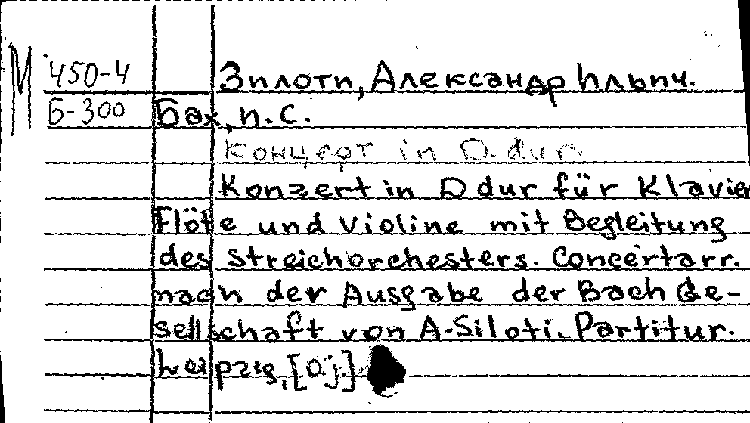 М 450-4 Зилоти, Александр Ильич.
Б-300 Бах, И.С.
Концерт in D. dur.
Konzert in D dur für Klavier
Flöte und Violine mit Begleitung
des Streichorchesters. Concertarr.
nach der Ausgabe der Bach Ge-
sellschaft von A. Siloti. Partitur.
Leipzig, [o.j.]